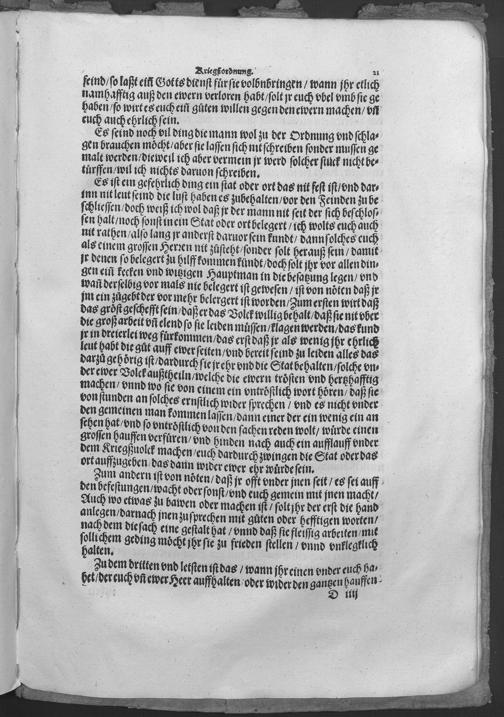 Kriegßordnung. 21
seind/so laßt eiñ Gotts dienst für sie volbnbringen/wann jhr etlich
namhafftig auß den ewern verloren habt/solt jr euch vbel vmb sie ge
haben/so wirt es euch eiñ gůten willen gegen den ewern machen/vñ
euch auch ehrlich sein.
Es seind noch vil ding die mann wol zu der Ordnung vnd schla-
gen brauchen möcht/aber sie lassen sich nit schreiben sonder mussen ge
male werden/dieweil ich aber vermein jr werd solcher stuck nicht be-
türffen/wil ich nichts daruon schreiben.
Es ist ein gefehrlich ding ein stat oder ort das nit fest ist/vnd dar-
inn nit leut seind die lust haben es zubehalten/vor den Feinden zu be
schliessen/doch weiß ich wol daß jr der mann nit seit der sich beschlos-
sen halt/noch sonst in ein Stat oder ort belegert/ich wolts euch auch
nit rathen/also lang jr anderst daruor sein kundt/dann solches euch
als einem grossen Herren nit zůsteht/sonder solt herauß sein/damit
jr denen so belegert zu hilff kommen kündt/doch solt jhr vor allen din-
gen eiñ kecken vnd witzigen Hauptman in die besatzung legen/vnd
wañ derselbig vor mals nie belegert ist gewesen/ist von nöten daß jr
jm ein zůgebt der vor mehr belergert ist worden/Zum ersten wirt daß
das gröst gescheft sein/daß er das Volck willig behalt/daß sie nit vber
die groß arbeit vñ elend so sie leiden müssen/klagen werden/das kund
jr in dreierlei weg fürkommen/das erst daß jr als wenig jhr ehrlich
leut habt die gůt auff ewer seiten/vnd bereit seind zu leiden alles das
darzů gehörig ist/dardurch sie jr ehr vnd die Stat behalten/solche vn-
der ewer Volck außtheiln/welche die ewern trösten vnd hertzhafftig
machen/vnnd wo sie von einem ein vntröstlich wort hören/daß sie
von stunden an solches ernstlich wider sprechen/vnd es nicht vnder
den gemeinen man kommen lassen/dann einer der ein wenig ein an
sehen hat/vnd so vntröstlich von den sachen reden wolt/würde einen
grossen hauffen verfüren/vnd hinden nach auch ein aufflauff vnder
dem Kriegßuolck machen/euch dardurch zwingen die Stat oder das
ort auffzugeben/das dann wider ewer ehr würde sein.
Zum andern ist von nöten/daß jr offt vnder jnen seit/es sei auff
den befestungen/wacht oder sonst/vnd euch gemein mit jnen macht/
Auch wo etwas zu bawen oder machen ist/solt jhr der erst die hand
anlegen/darnach jnen zusprechen mit gůten oder hefftigen worten/
nach dem die sach eine gestalt hat/vnnd daß sie fleissig arbeiten/mit
sollichem geding möcht jhr sie zu frieden stellen/vnnd vnklegklich
halten.
Zu dem dritten vnd letsten ist das/wann jhr einen vnder euch ha-
bet/der euch vñ ewer Heer auffhalten/oder wider den gantzen hauffen
D iiij